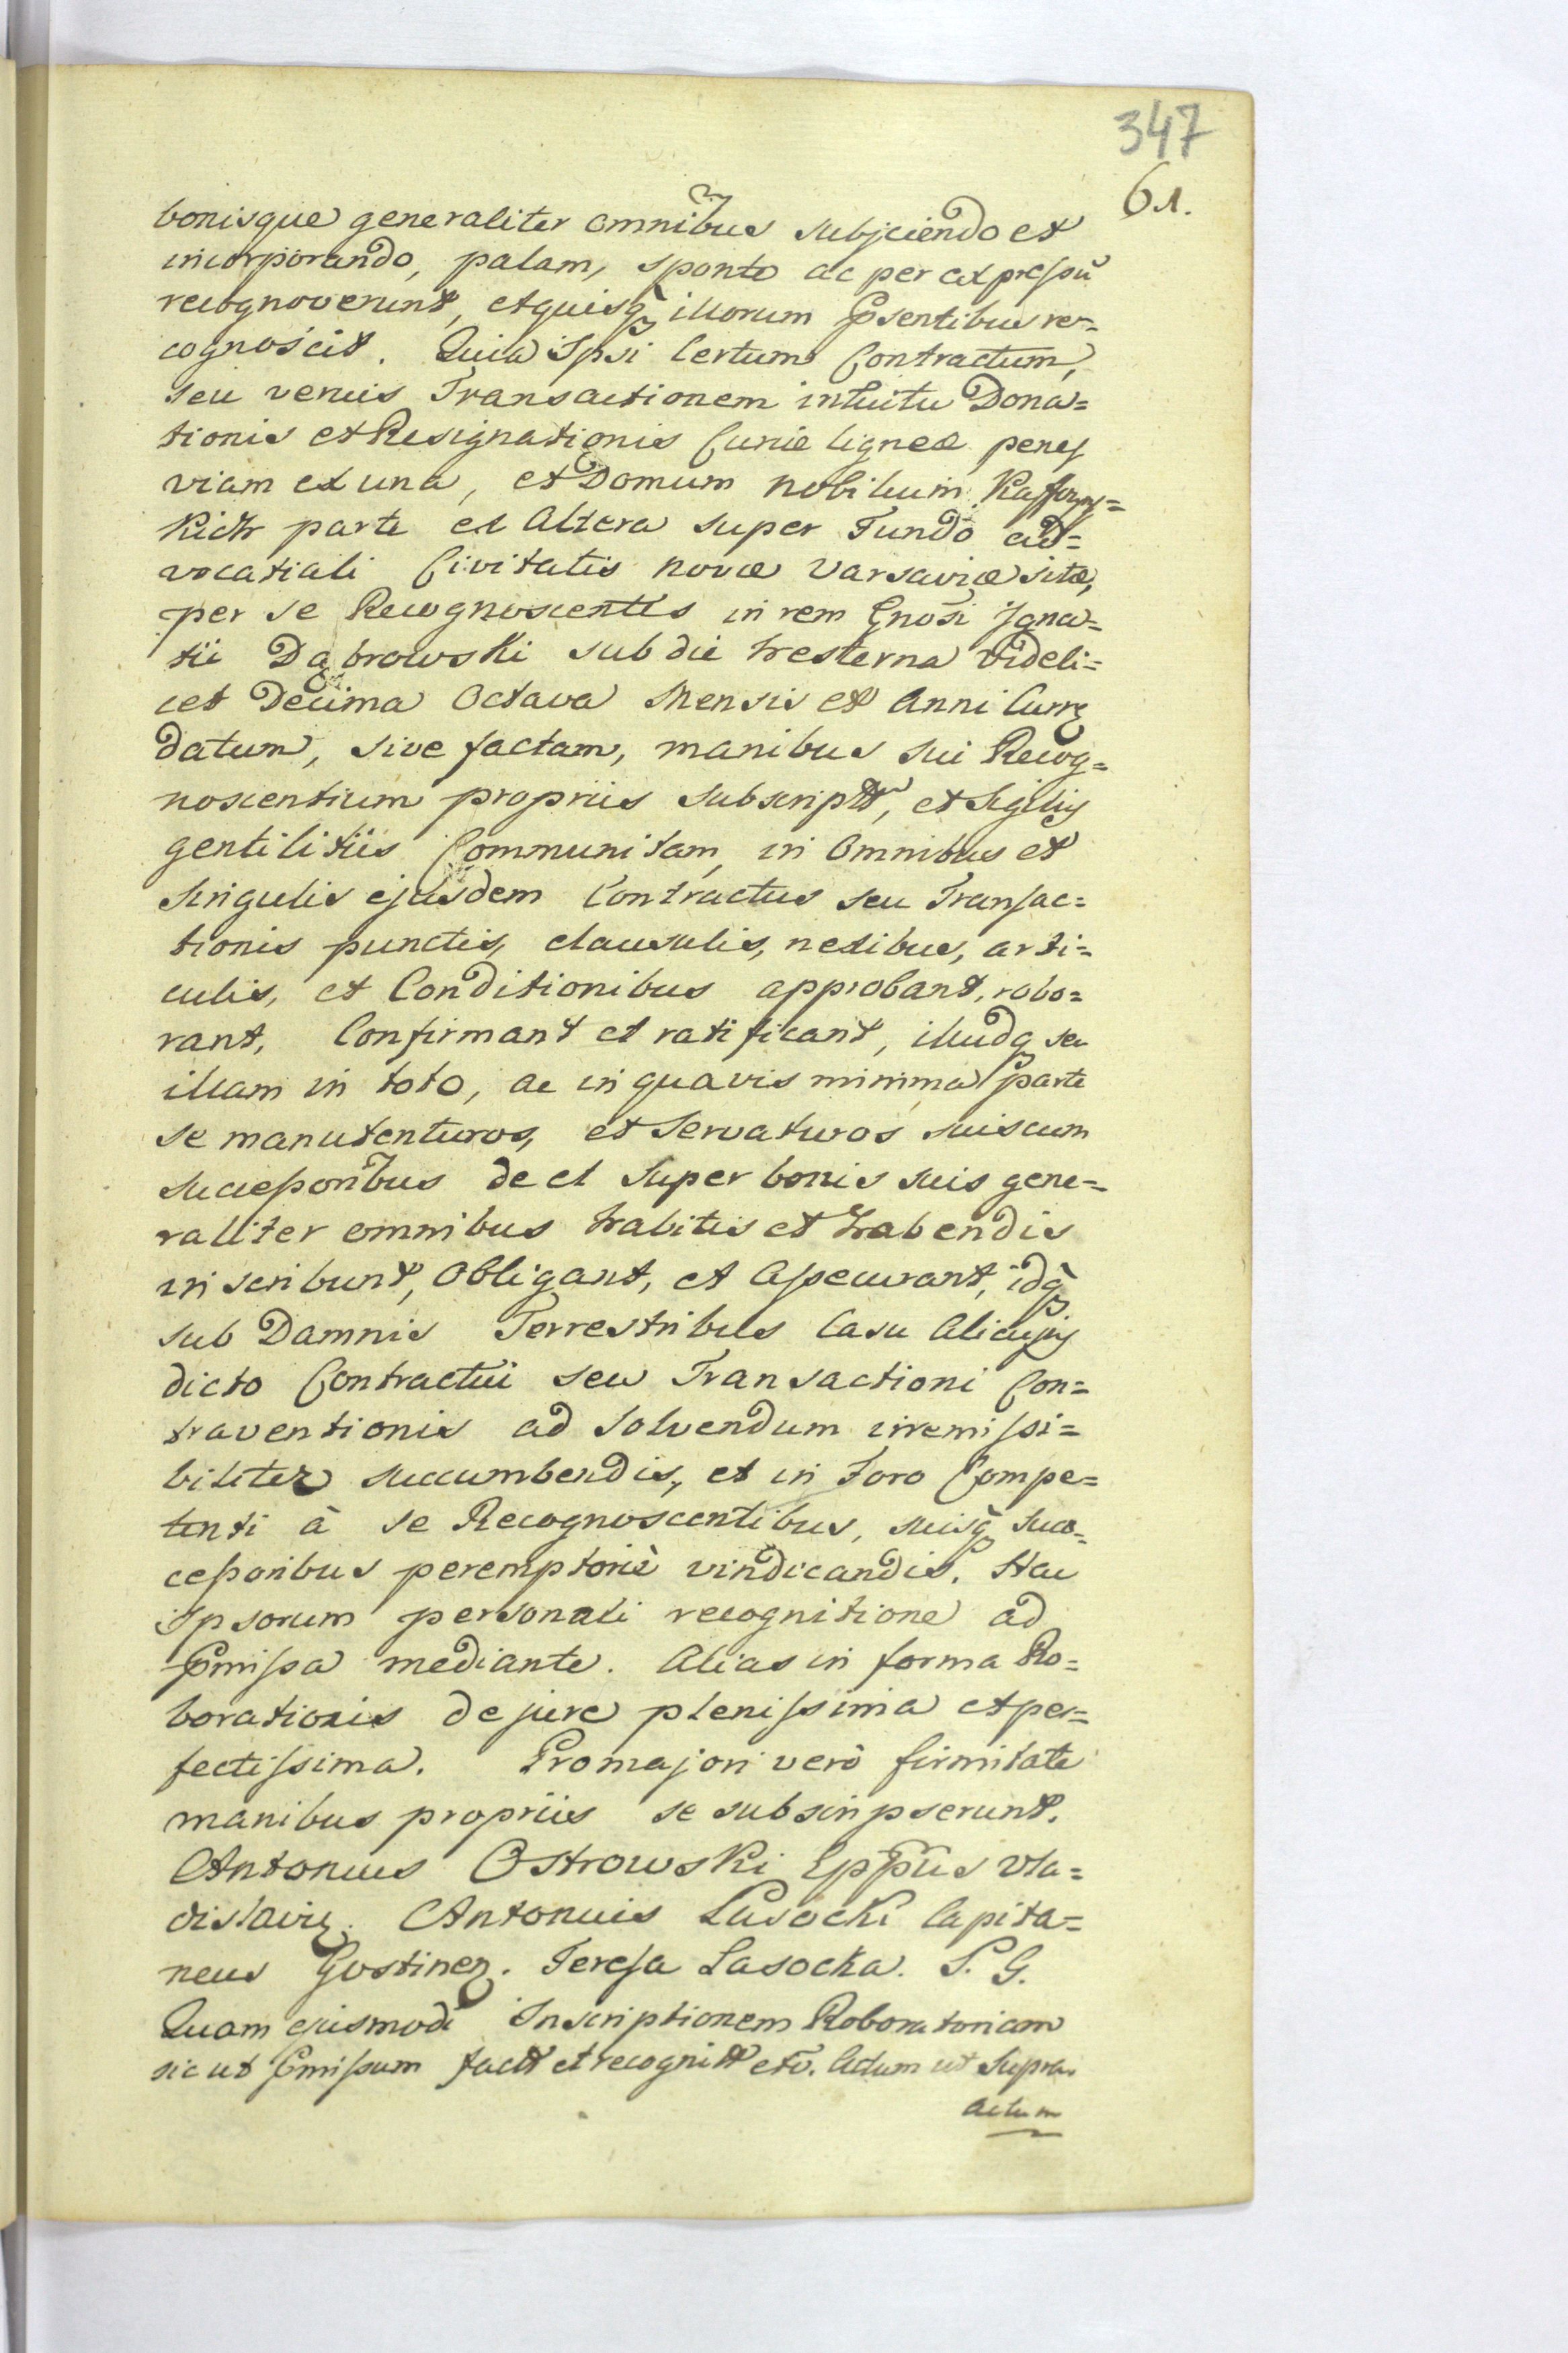 347
61.
bonisque generaliter omnibus subjciendo et
incorporando, palam, sponte ac per expressũ
recognoverunt, et quisq̃ illorum Pp̃sentibus re=
cognoscit. Quia Ipsi Certum Contractum,
seu verius Transactionem intuitu Dona=
tionis et Resignationis Curiæ ligneæ penes
viam ex una, et Domum nobilium
parte ex Altera super Fundo ad=
vocatiali Civitatis novæ Varsaviæ sitæ,
per se Recognoscentes in rem Gnosi Igna=
tii Dąbrowski sub die hesterna videli=
cet Decima Octava Mensis et Anni Curr̃
datum, sive factam, manibus sui Recog=
noscentium propriis subscriptt, et Sigillis
gentilitiis Communitam, in Omnibus et
singulis ejusdem Contractus seu Transac=
tionis punctis, clausulis, nexibus, arti=
culis, et Conditionibus approbant, robo=
rant, Confirmant et ratificant, illudq̃ seu
illam in toto, ac in quavis minima parte
se manutenturos, et servaturos suis cum
successoribus de et super bonis suis gene=
raliter omnibus habitis et habendis
inscribunt, Obligant, et Assecurant, idq̃
sub Damnis Terrestribus Casu Alicujus
dicto Contractui seu Transactioni Con=
traventionis ad solvendum irremissi=
biliter succumbendis, et in Foro Compe=
tenti à se Recognoscentibus, suisq̃ suc=
cessoribus peremptoriè vindicandis. Hac
Ipsorum personali recognitione ad
Pp̃missa mediante. Alias in forma Ro=
borationis de jure plenissima et per=
fectissima. Pro majori verò firmitate
manibus propriis se subscripserunt.
Antonius Ostrowski Eppũs Vla=
dislavis. Antonius Lasocki Capita=
neus Gostinen. Teresa Lasocka. S. G.
Quam ejusmodi Inscriptionem Roboratoriam
sic ut Pp̃missum factt et recognitt etc. Actum ut Supra
Actum